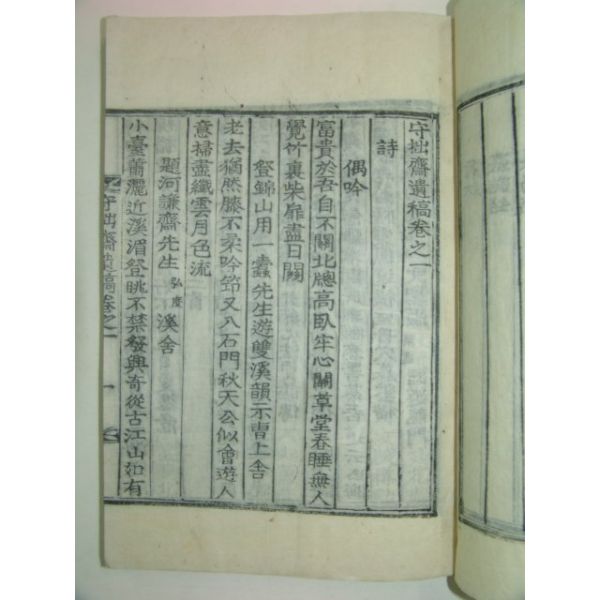 守拙齋遺稿卷之一
詩
偶吟
富貴於吾自不關北牕高臥牢心關草堂春睡無人
覺竹裏柴扉盡日關
登錦山用一蠹先生遊雙溪韻示曺上舍
老去猶然膝不柔吟筇又入石門秋天公似會遊人
意掃盡纖雲月色流
題河謙齋先生弘度溪舍
小臺蕭灑近溪湄登眺不禁發興奇從古江山如有
守拙齋遺稿卷之一 一